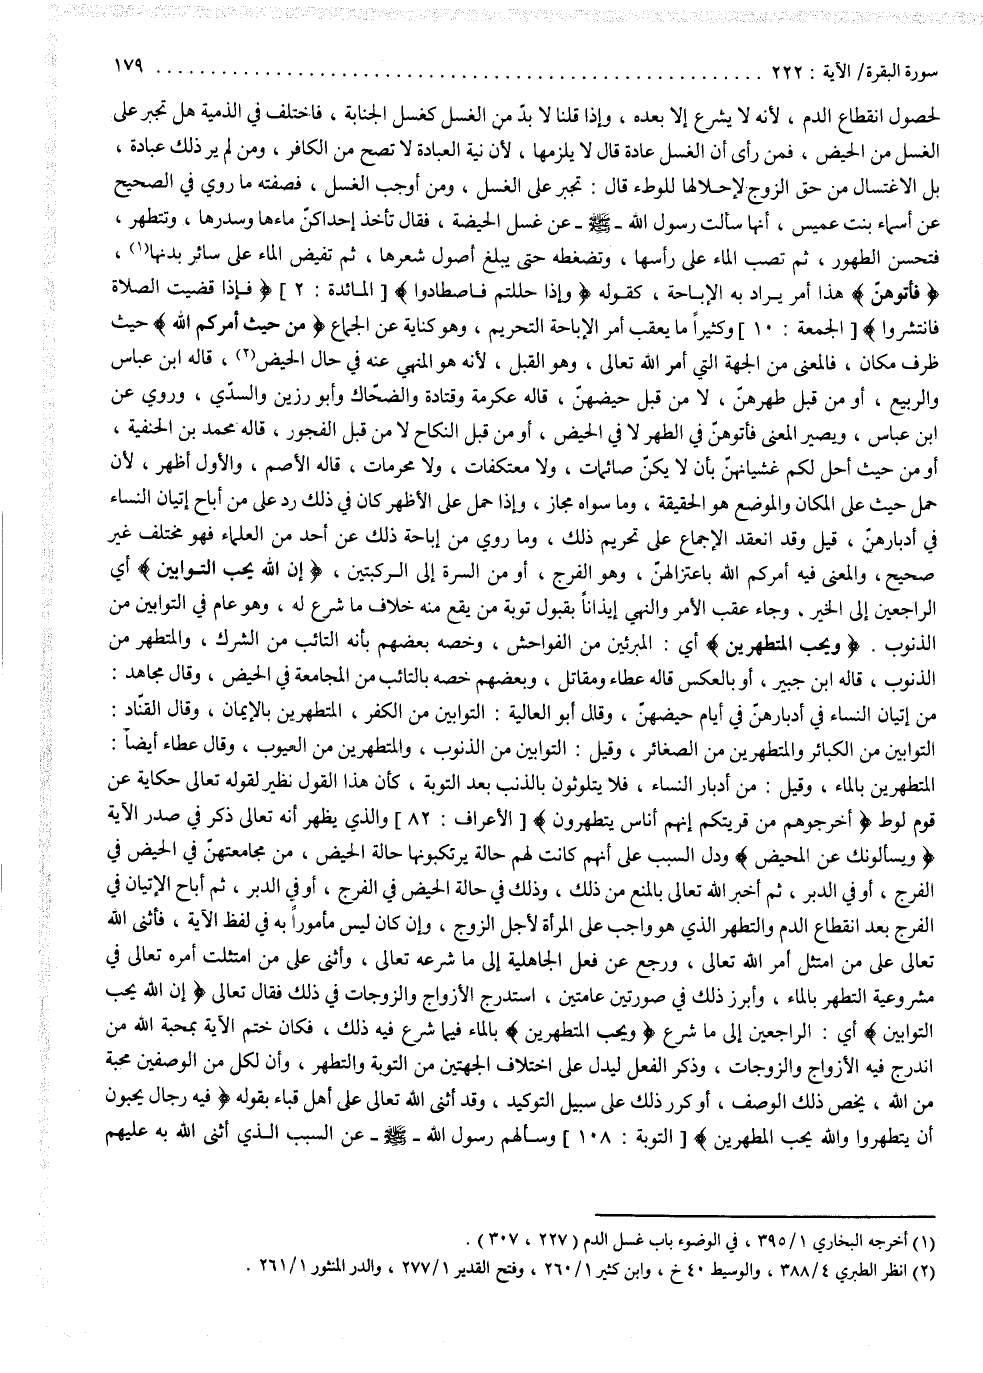 سورة البقرة/ الآية : ٢٢٢ ........................................................ ١٧٩
لحصول انقطاع الدم ، لأنه لا يشرع إلا بعده ، وإذا قلنا لا بدّ من الغسل كغسل الجنابة ، فاختلف في الذمية هل تجبر على
الغسل من الحيض ، فمن رأى أن الغسل عادة قال لا يلزمها ، لأن نية العبادة لا تصح من الكافر ، ومن لم ير ذلك عبادة ،
بل الاغتسال من حق الزوج لإحلالها للوطء قال : تجبر على الغسل ، ومن أوجب الغسل ، فصفته ما روي في الصحيح
عن أسماء بنت عميس ، أنها سألت رسول الله ـ ﷺ ـ عن غسل الحيضة ، فقال تأخذ إحداكنّ ماءها وسدرها ، وتتطهر ،
فتحسن الطهور ، ثم تصب الماء على رأسها ، وتضغطه حتى يبلغ أصول شعرها ، ثم تفيض الماء على سائر بدنها(١) ،
﴿ فأتوهنّ ﴾ هذا أمر يراد به الإباحة ، كقوله ﴿ وإذا حللتم فاصطادوا ﴾ [ المائدة : ٢ ] ﴿ فإذا قضيت الصلاة
فانتشروا ﴾ [ الجمعة : ١٠ ] وكثيراً ما يعقب أمر الإباحة التحريم ، وهو كناية عن الجماع ﴿ من حيث أمركم الله ﴾ حيث
ظرف مكان ، فالمعنى من الجهة التي أمر الله تعالى ، وهو القبل ، لأنه هو المنهي عنه في حال الحيض(٢) ، قاله ابن عباس
والربيع ، أو من قبل طهرهنّ ، لا من قبل حيضهنّ ، قاله عكرمة وقتادة والضحّاك وأبو رزين والسدّي ، وروي عن
ابن عباس ، ويصير المعنى فأتوهنّ في الطهر لا في الحيض ، أو من قبل النكاح لا من قبل الفجور ، قاله محمد بن الحنفية ،
أو من حيث أحل لكم غشيانهنّ بأن لا يكنّ صائمات ، ولا معتكفات ، ولا محرمات ، قاله الأصم ، والأول أظهر ، لأن
حمل حيث على المكان والموضع هو الحقيقة ، وما سواه مجاز ، وإذا حمل على الأظهر كان في ذلك رد على من أباح إتيان النساء
في أدبارهنّ ، قيل وقد انعقد الإجماع على تحريم ذلك ، وما روي من إباحة ذلك عن أحد من العلماء فهو مختلف غير
صحيح ، والمعنى فيه أمركم الله باعتزالهنّ ، وهو الفرج ، أو من السرة إلى الركبتين ، ﴿ إن الله يحب التوابين ﴾ أي
الراجعين إلى الخير ، وجاء عقب الأمر والنهي إيذاناً بقبول توبة من يقع منه خلاف ما شرع له ، وهو عام في التوابين من
الذنوب . ﴿ ويحب المتطهرين ﴾ أي : المبرئين من الفواحش ، وخصه بعضهم بأنه التائب من الشرك ، والمتطهر من
الذنوب ، قاله ابن جبير ، أو بالعكس قاله عطاء ومقاتل ، وبعضهم خصه بالتائب من المجامعة في الحيض ، وقال مجاهد :
من إتيان النساء في أدبارهنّ في أيام حيضهنّ ، وقال أبو العالية : التوابين من الكفر ، المتطهرين بالإيمان ، وقال القنّاد :
التوابين من الكبائر والمتطهرين من الصغائر ، وقيل : التوابين من الذنوب ، والمتطهرين من العيوب ، وقال عطاء أيضاً :
المتطهرين بالماء ، وقيل : من أدبار النساء ، فلا يتلوثون بالذنب بعد التوبة ، كأن هذا القول نظير لقوله تعالى حكاية عن
قوم لوط ﴿ أخرجوهم من قريتكم إنهم أناس يتطهرون ﴾ [ الأعراف : ٨٢ ] والذي يظهر أنه تعالى ذكر في صدر الآية
﴿ ويسألونك عن المحيض ﴾ ودل السبب على أنهم كانت لهم حالة يرتكبونها حالة الحيض ، من مجامعتهنّ في الحيض في
الفرج ، أو في الدبر ، ثم أخبر الله تعالى بالمنع من ذلك ، وذلك في حالة الحيض في الفرج ، أو في الدبر ، ثم أباح الإتيان في
الفرج بعد انقطاع الدم والتطهر الذي هو واجب على المرأة لأجل الزوج ، وإن كان ليس مأموراً به في لفظ الآية ، فأثنى الله
تعالى على من امتثل أمر الله تعالى ، ورجع عن فعل الجاهلية إلى ما شرعه تعالى ، وأثنى على من امتثلت أمره تعالى في
مشروعية التطهر بالماء ، وأبرز ذلك في صورتين عامتين ، استدرج الأزواج والزوجات في ذلك فقال تعالى ﴿ إن الله يحب
التوابين ﴾ أي : الراجعين إلى ما شرع ﴿ ويحب المتطهرين ﴾ بالماء فيما شرع فيه ذلك ، فكان ختم الآية بمحبة الله من
اندرج فيه الأزواج والزوجات ، وذكر الفعل ليدل على اختلاف الجهتين من التوبة والتطهر ، وأن لكل من الوصفين محبة
من الله ، يخص ذلك الوصف ، أو كرر ذلك على سبيل التوكيد ، وقد أثنى الله تعالى على أهل قباء بقوله ﴿ فيه رجال يحبون
أن يتطهروا والله يحب المطهرين ﴾ [ التوبة : ١٠٨ ] وسألهم رسول الله ـ ﷺ ـ عن السبب الذي أثنى الله به عليهم
(١) أخرجه البخاري ١/ ٣٩٥ ، في الوضوء باب غسل الدم ( ٢٢٧ ، ٣٠٧ ) .
(٢) انظر الطبري ٤/ ٣٨٨ ، والوسيط ٤٠ خ ، وابن كثير ١/ ٢٦٠ ، وفتح القدير ١/ ٢٧٧ ، والدر المنثور ١/ ٢٦١ .